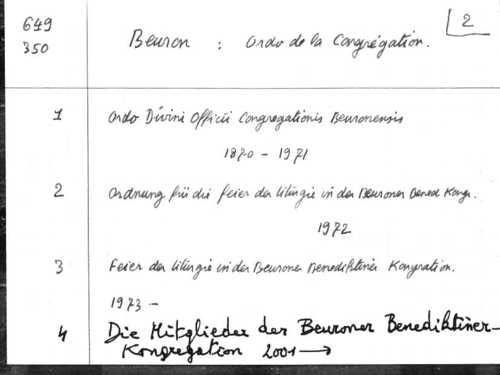 649
350
Beuron : ordo de la Congrégation.
2
1 Ordo Divini Officii Congregationis Beuronensis
1870 - 1971
2 Ordnung für die Feier der Liturgie in der Beuroner Bened Kongr.
1972
3 Feier der Liturgie in der Beuroner Benediktiner Kongregation.
1973 -
4 Die Mitglieder der Beuroner Benediktiner-
Kongregation 2001 →